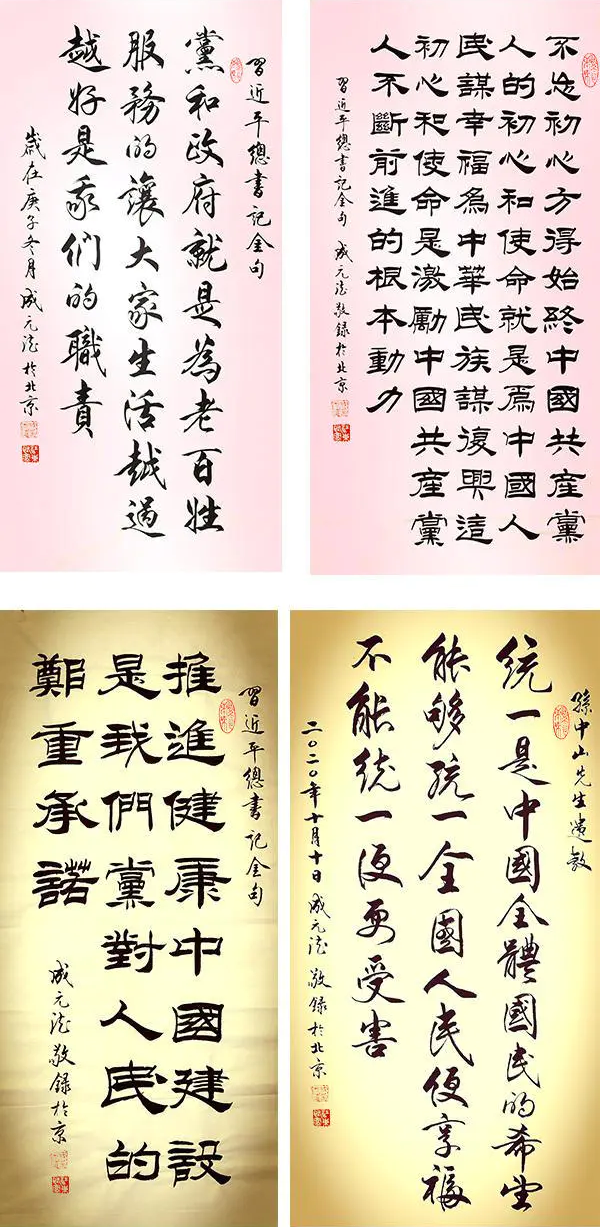 習近平總書記金句
黨和政府就是為老百姓
服務的讓大家生活越過
越好是我們的職責
歲在庚子冬月成元法於北京
不忘初心方得始終中國共産黨
人的初心和使命就是爲中國人
民謀幸福爲中華民族謀復興這
初心和使命是激勵中國共産黨
人不斷前進的根本動力
習近平總書記金句 成元法敬録於北京
習近平總書記金句
推進健康中國建設
是我們黨對人民的
鄭重承諾
成元法敬録於京
孫中山先生遺教
统一是中國全體國民的希望
能够统一全國人民便享福
不能统一便要受害
二〇二〇年十月十日 成元法敬録於北京